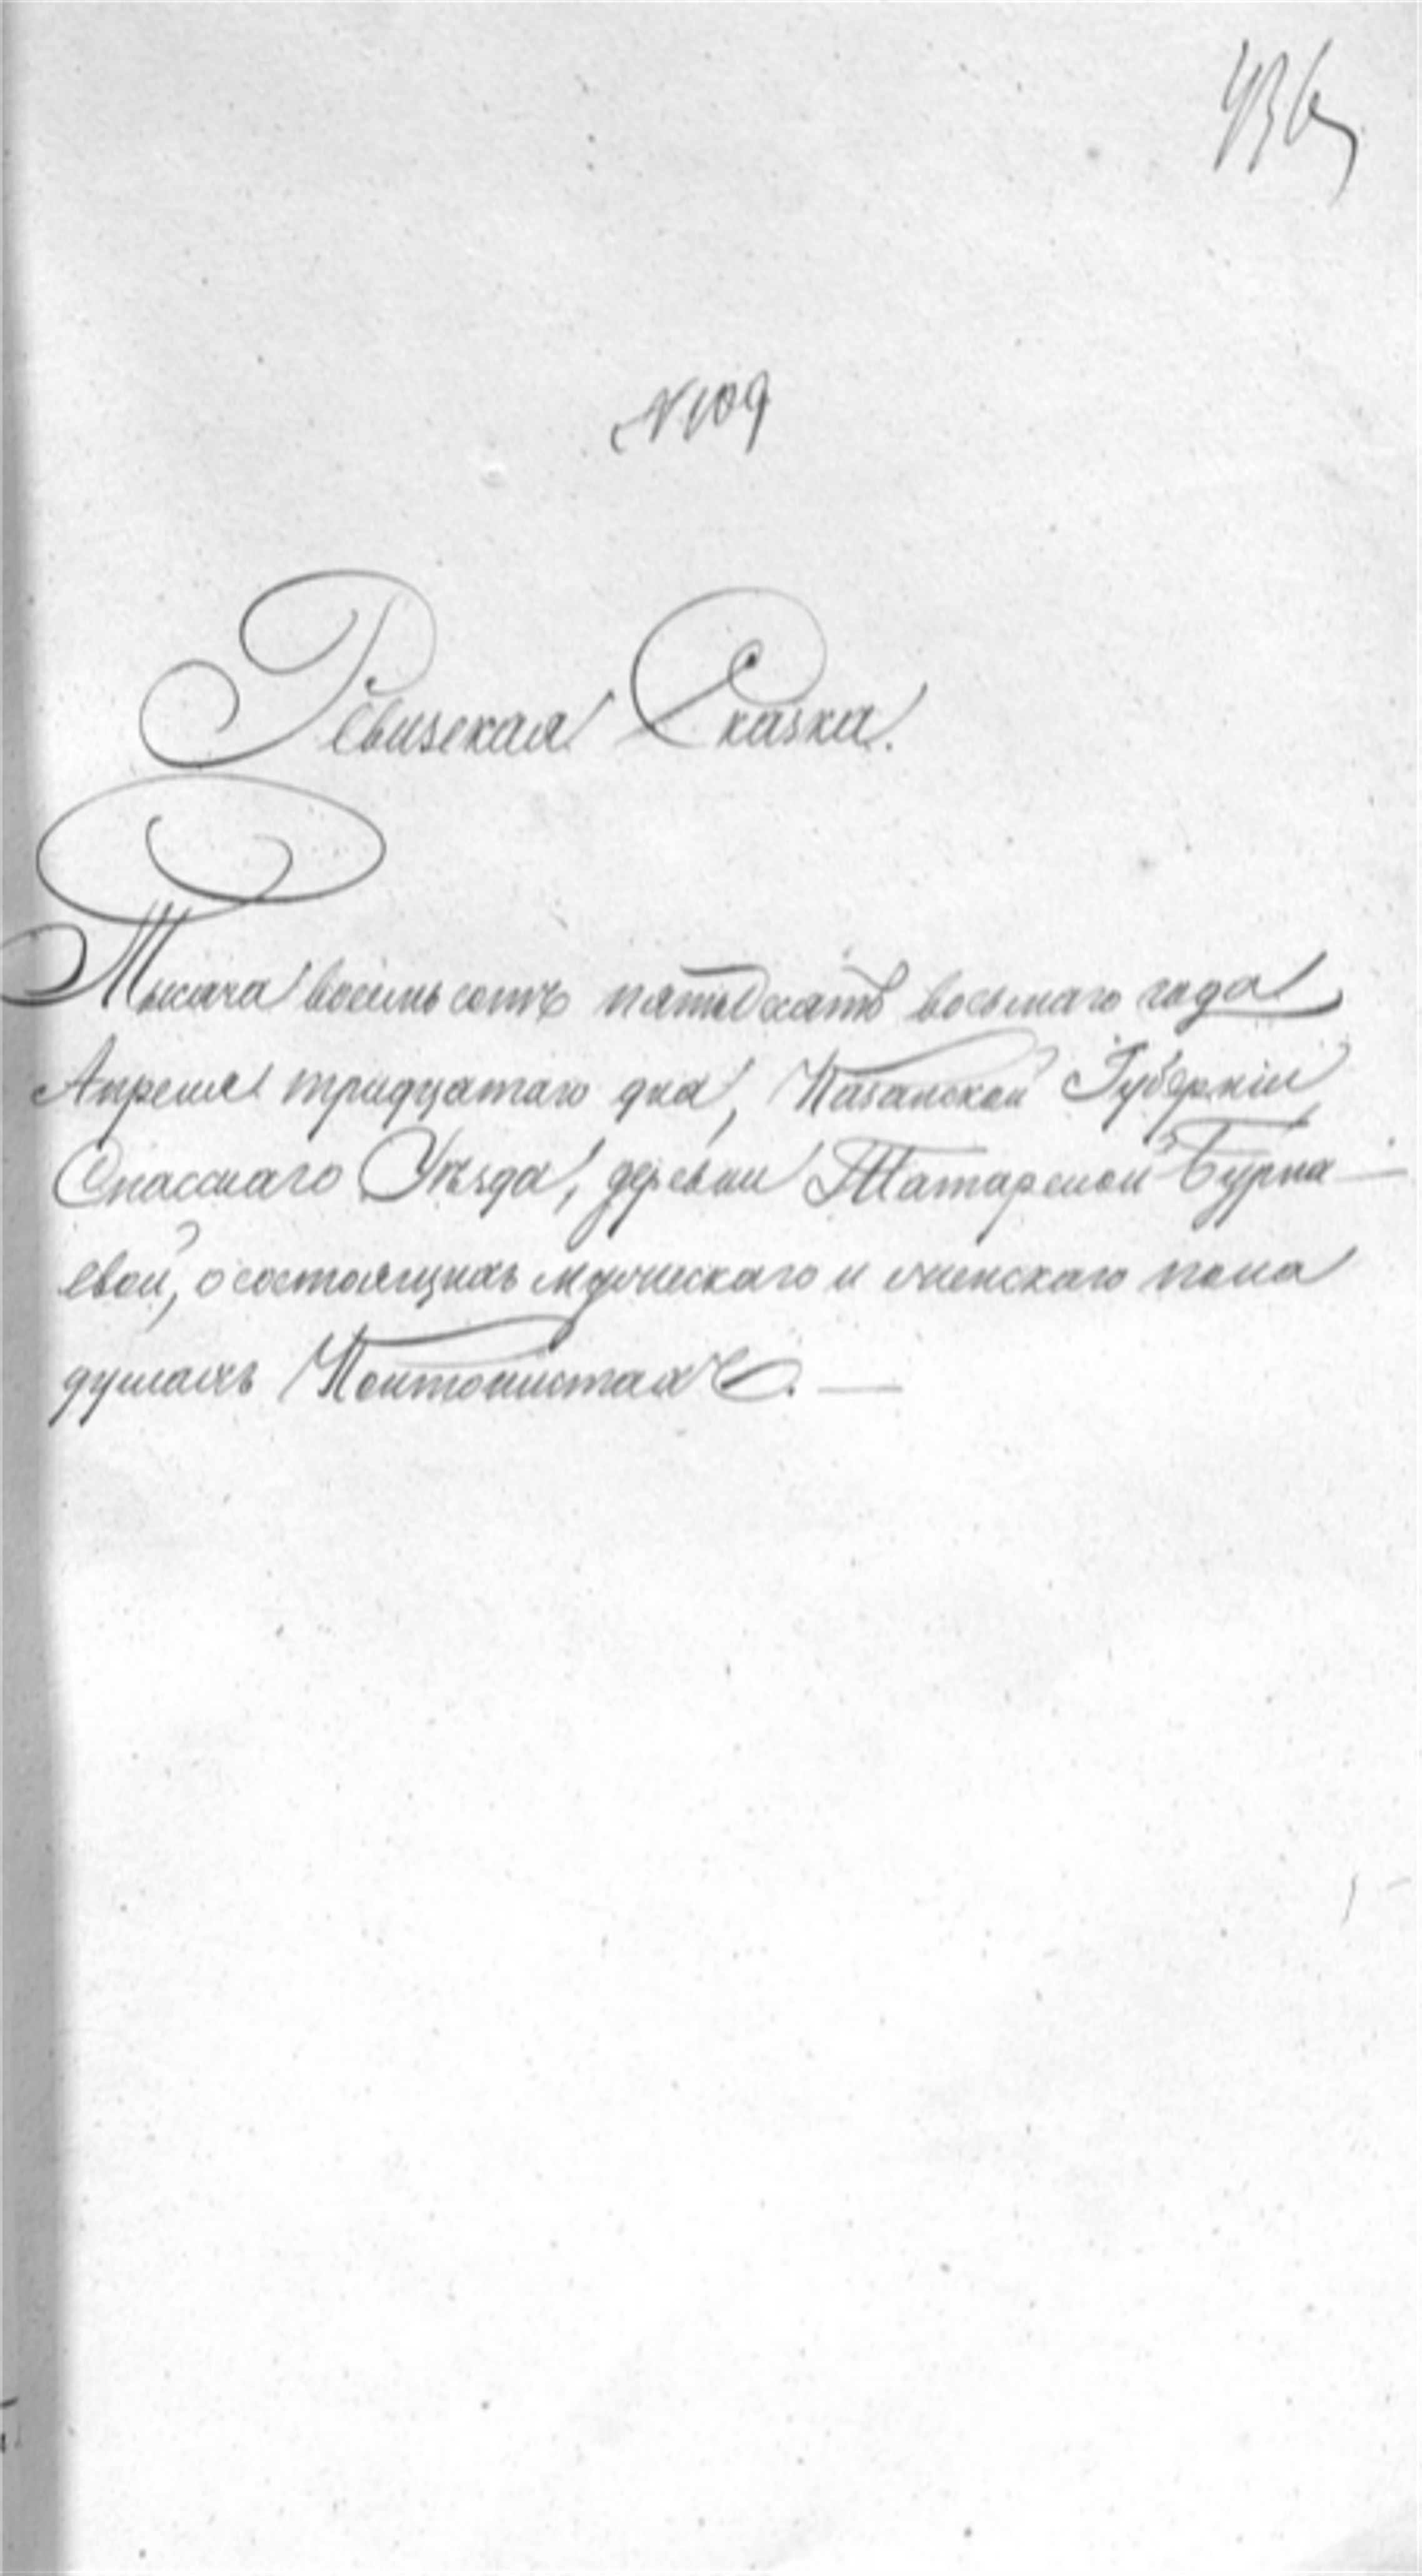 436
№109
Ревизская Сказка.
Тысяча восемь сотъ пятьдесятъ восьмаго года
Апреля тридцатаго дня, Казанской Губерніи
Спасскаго Уѣзда, деревни Татарской Бурна-
евой, о состоящихъ мужескаго и женскаго пола
душахъ Кантонистахъ. —